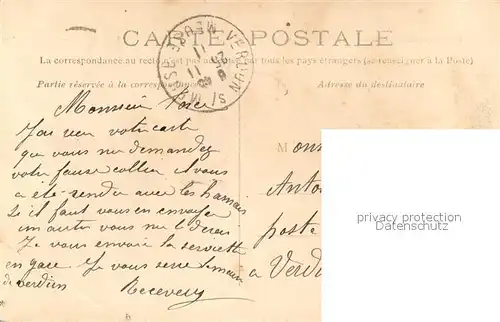 CARTE POSTALE
La correspondance au recto n'est pas autorisée par tous les pays étrangers (se renseigner à la Poste)
Partie réservée à la correspondance
Adresse du destinataire
VERDUN S/ MEUSE
Monsieur
J'ai reçu votre carte
que vous me demandez
votre fausse collier vous
a été rendu avec les harnais
si il faut vous en envoyer
un autre vous me le direz
Je vous envoie la serviette
en gare Je vous serre la main
de verdun
M onsi
Anto
poste
a Verd
privacy protection
Datenschutz